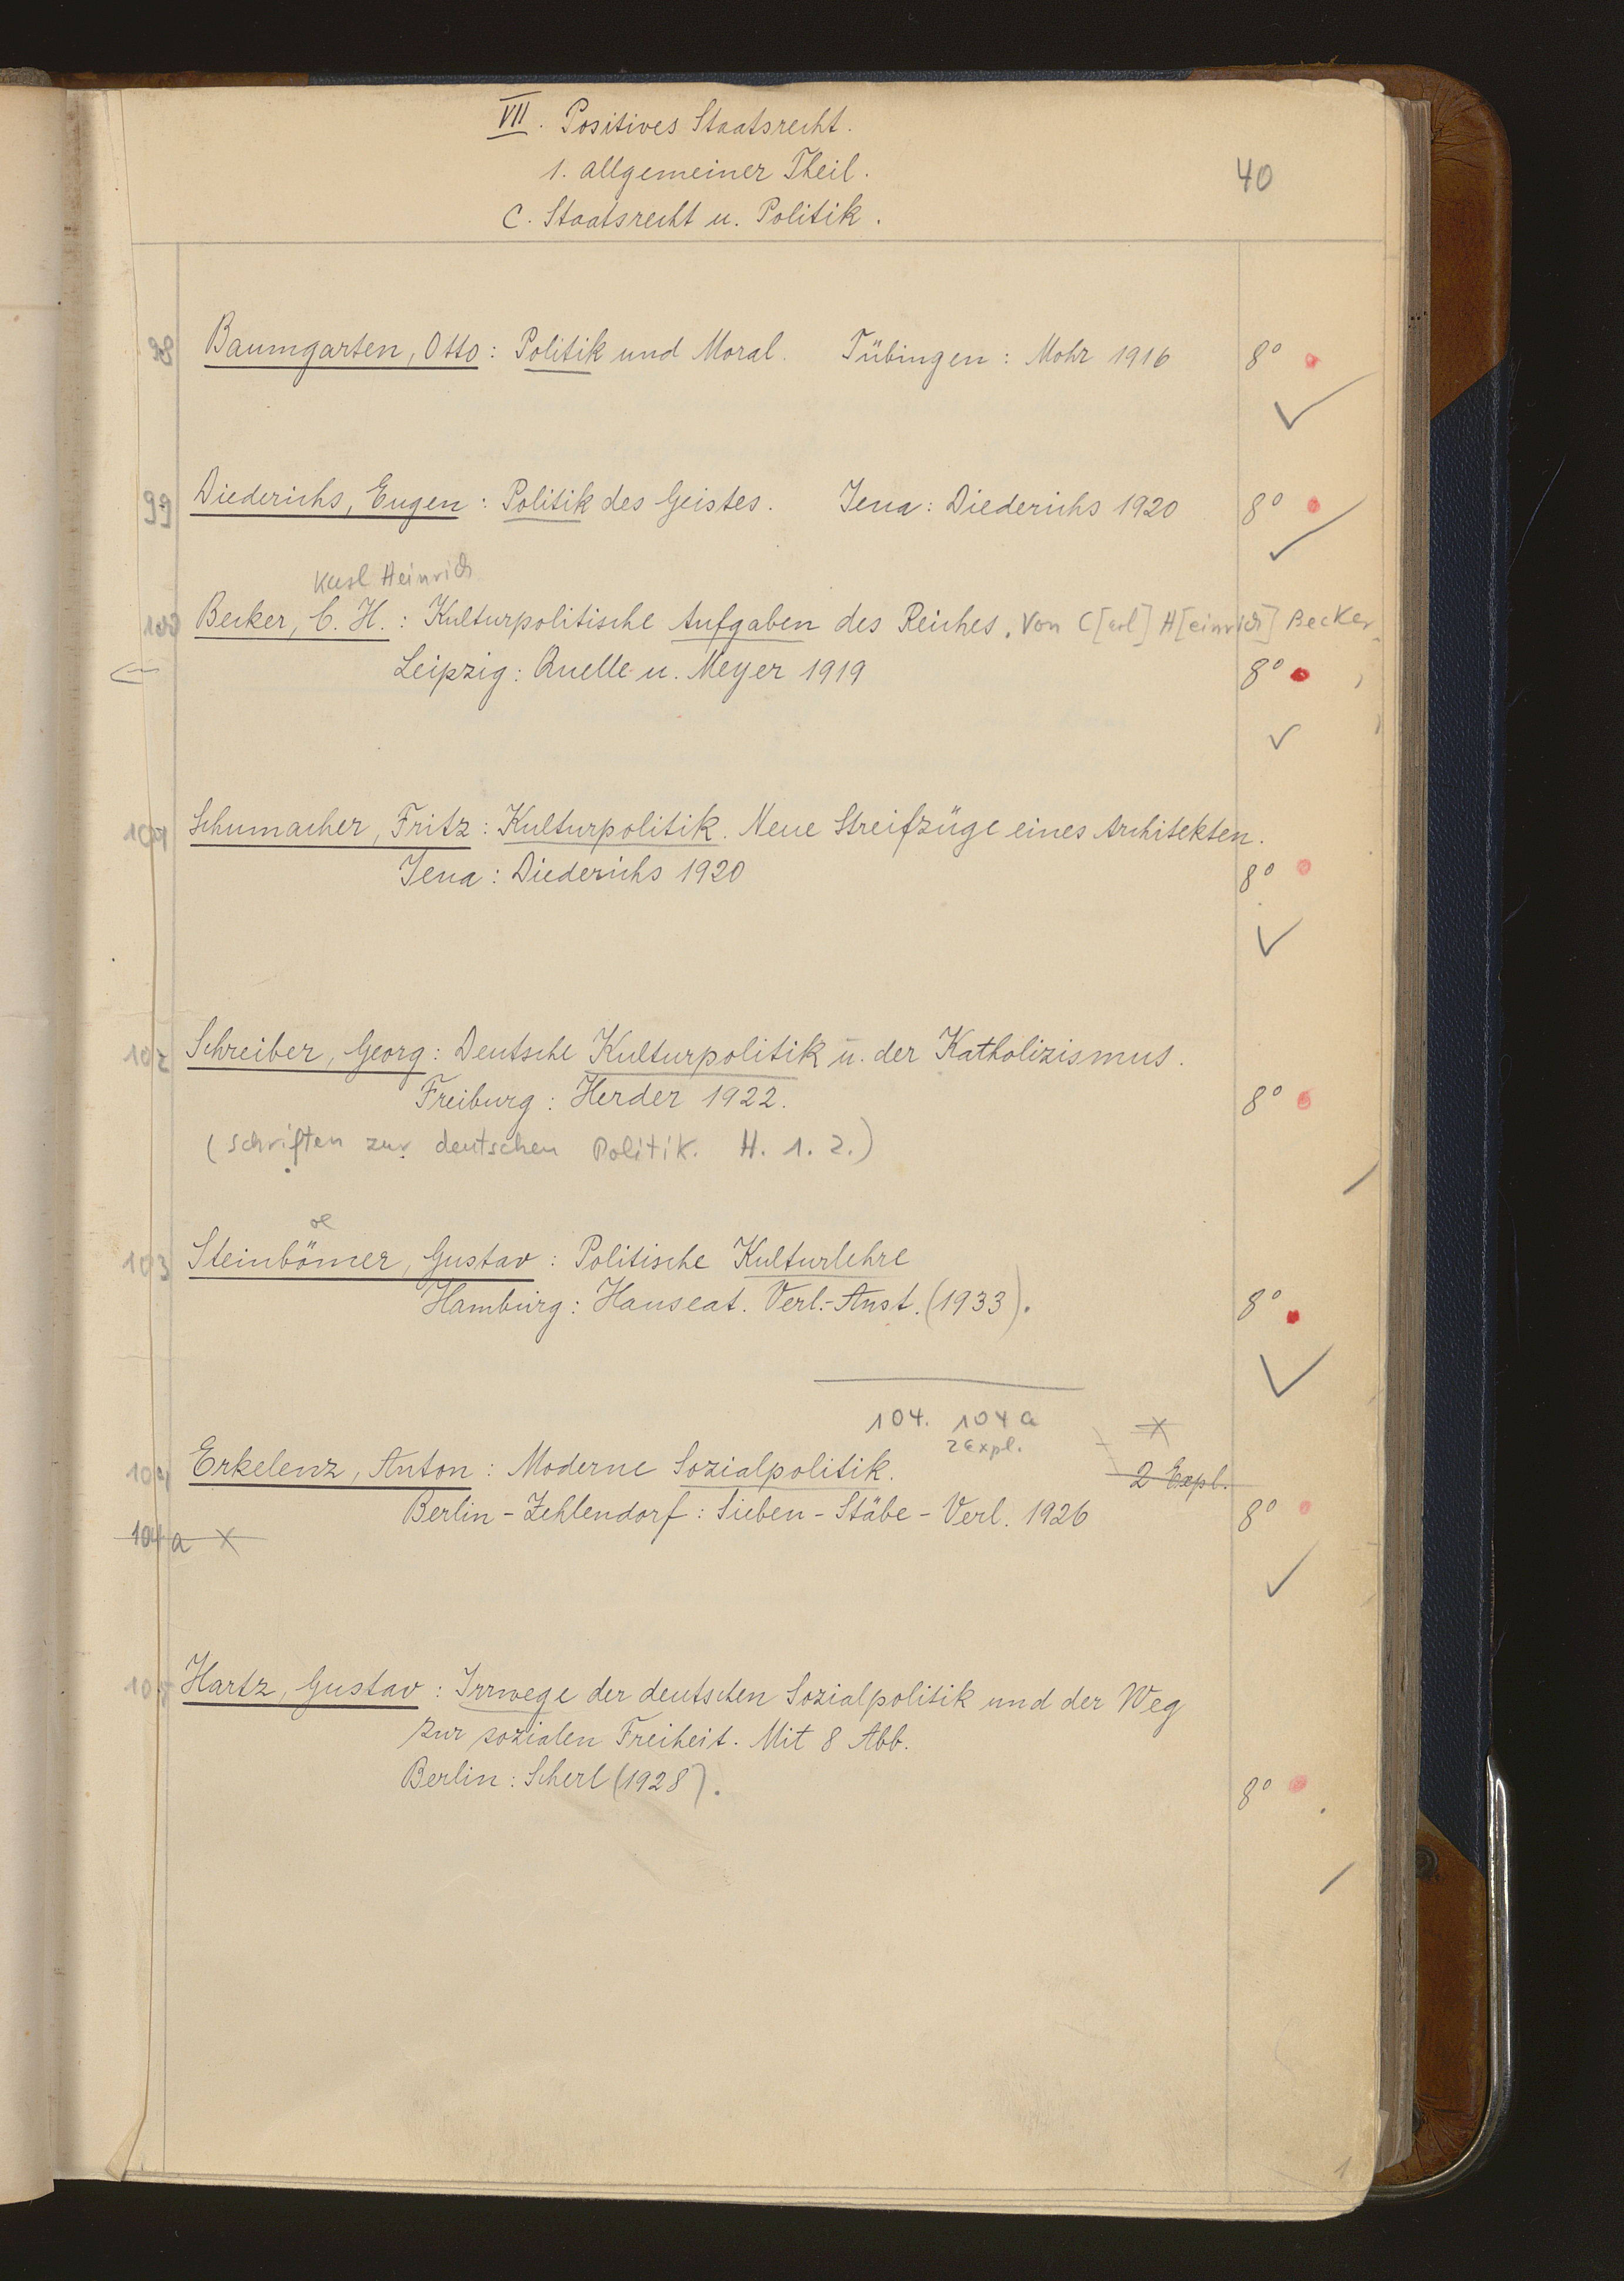 VII. Positives Staatsrecht.
1. Allgemeiner Theil.
40
C. Staatsrecht u. Politik.
98 Baumgarten, Otto: Politik und Moral. Tübingen: Mohr 1916 8°
99 Diederichs, Eugen: Politik des Geistes. Jena: Diederichs 1920 8°
Karl Heinrich
100 Becker, C. H.: Kulturpolitische Aufgaben des Reiches. Von C[arl] H[einrich] Becker
Leipzig: Quelle u. Meyer 1919 8°
101 Schumacher, Fritz: Kulturpolitik. Neue Streifzüge eines Architekten.
Jena: Diederichs 1920 8°
102 Schreiber, Georg: Deutsche Kulturpolitik u. der Katholizismus.
Freiburg: Herder 1922. 8°
(Schriften zur deutschen Politik. H. 1. 2.)
oe
103 Steinbömer, Gustav: Politische Kulturlehre
Hamburg: Hanseat. Verl.-Anst. (1933). 8°
104. 104a X
2 Expl.
104 Erkelenz, Anton: Moderne Sozialpolitik. 2 Expl.
Berlin-Zehlendorf: Sieben-Stäbe-Verl. 1926 8°
104a X
105 Hartz, Gustav: Irrwege der deutschen Sozialpolitik und der Weg
zur sozialen Freiheit. Mit 8 Abb.
Berlin: Scherl (1928). 8°
1